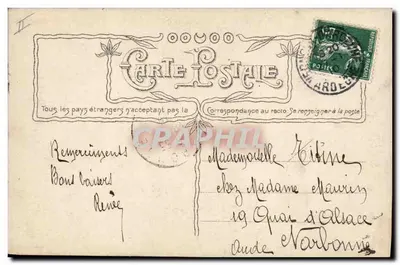 II
CARTE POSTALE
Tous les pays étrangers n'acceptant pas la Correspondance au recto, Se renseigner à la poste
Remerciments
Bons baisers
Renée
Mademoiselle Titine
Chez Madame Maurin
19 Quai d'Alsace
Narbonne
Aude